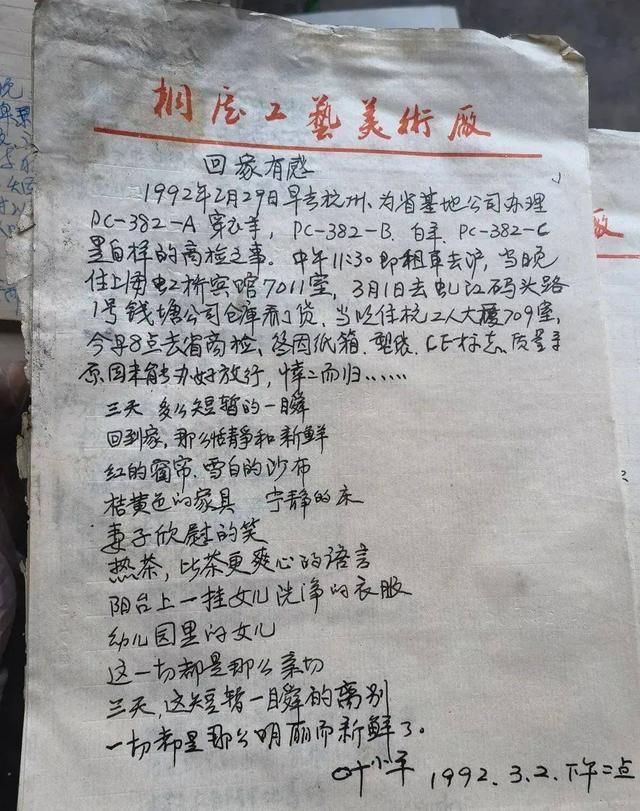 桐庐工艺美術廠
回家有感
1992年2月29日早去杭州、为省基地公司办理
PC-382-A 穿衣羊, PC-382-B. 白羊. PC-382-C
黑白样的商检之事。中午11:30即租车去沪,当晚
住上海虹桥宾馆7011室, 3月1日去虬江码头路
1号钱塘公司仓库看门货. 当晚住杭工人大厦709室,
今早8点去省商检、终因纸箱. 塑袋. CE标志. 质量等
原因未能办好放行, 悻二而归......
三天 多么短暂的一瞬
回到家, 那么恬静和新鲜
红的窗帘. 雪白的沙布
桔黄色的家具 宁静的床
妻子欣慰的笑
热茶, 比茶更爽心的语言
阳台上一挂女儿洗净的衣服
幼儿园里的女儿
这一切都是那么亲切
三天, 这短暂一瞬的离别
一切都是那么明丽而新鲜了。
叶小平 1992. 3.2. 下午二点
廠